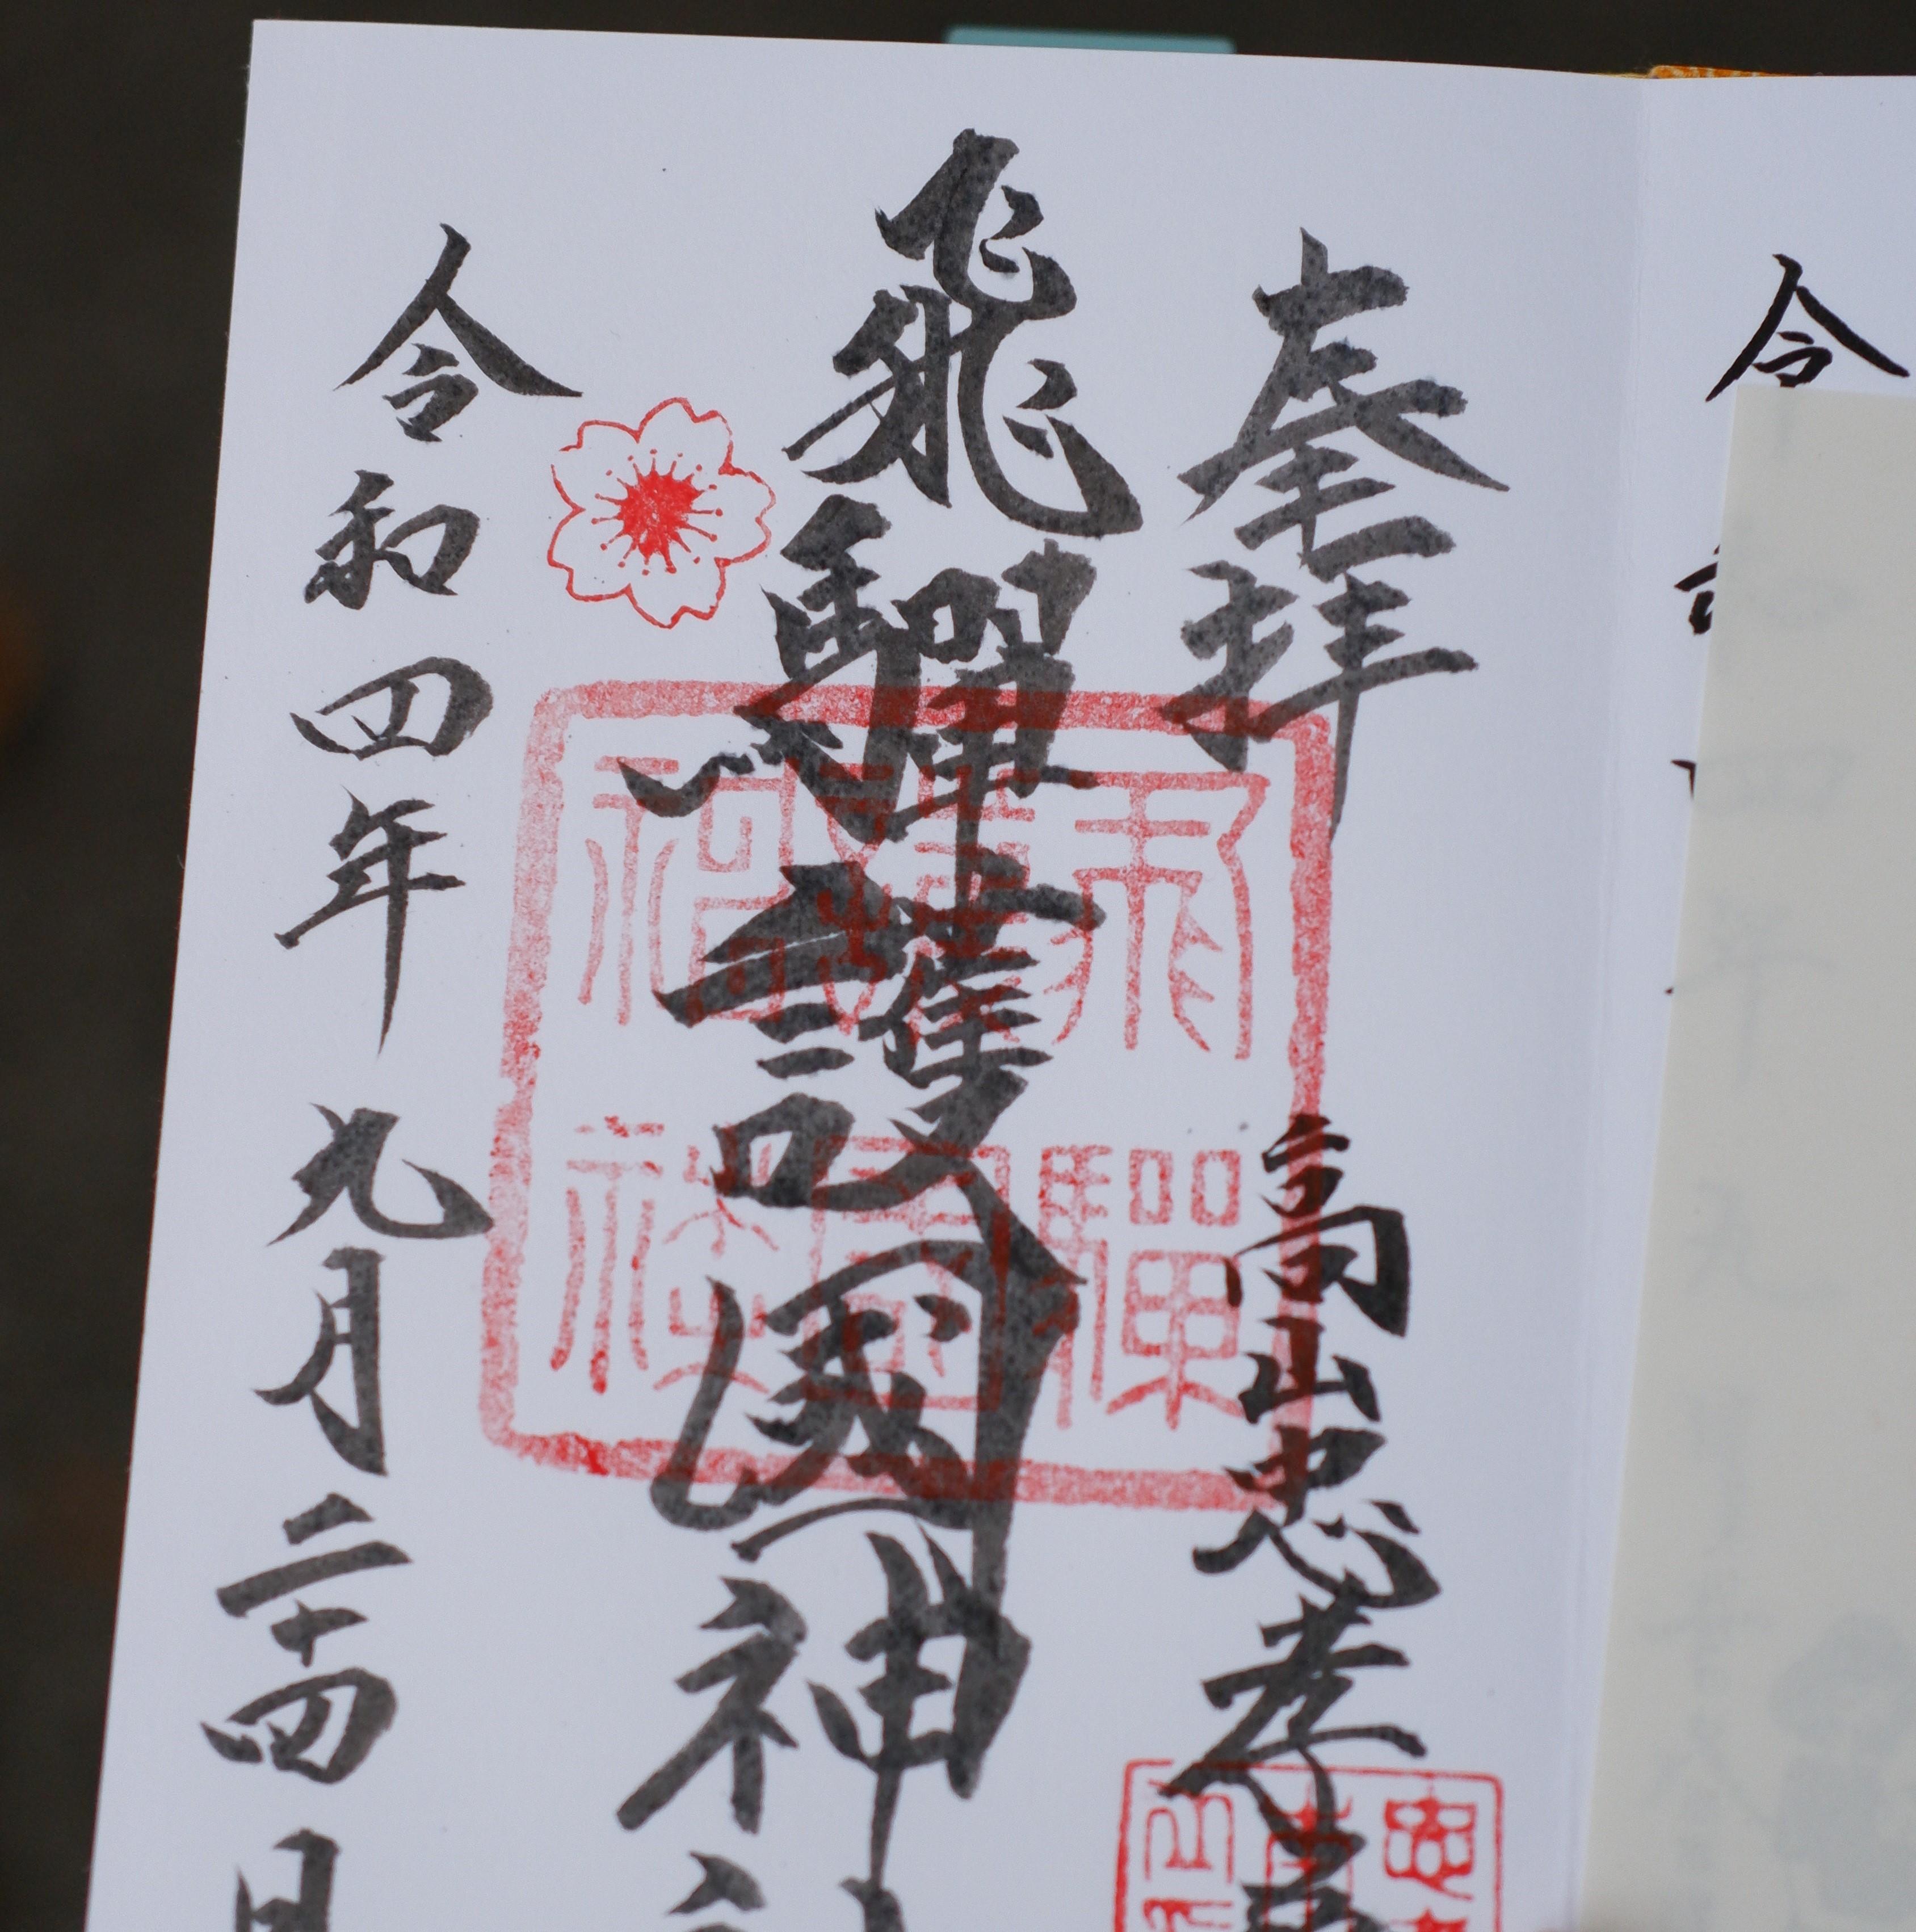 令
奉拝 高山忠孝
飛驒護國神
令和四年 九月二十四日
飛驒
護國
神社